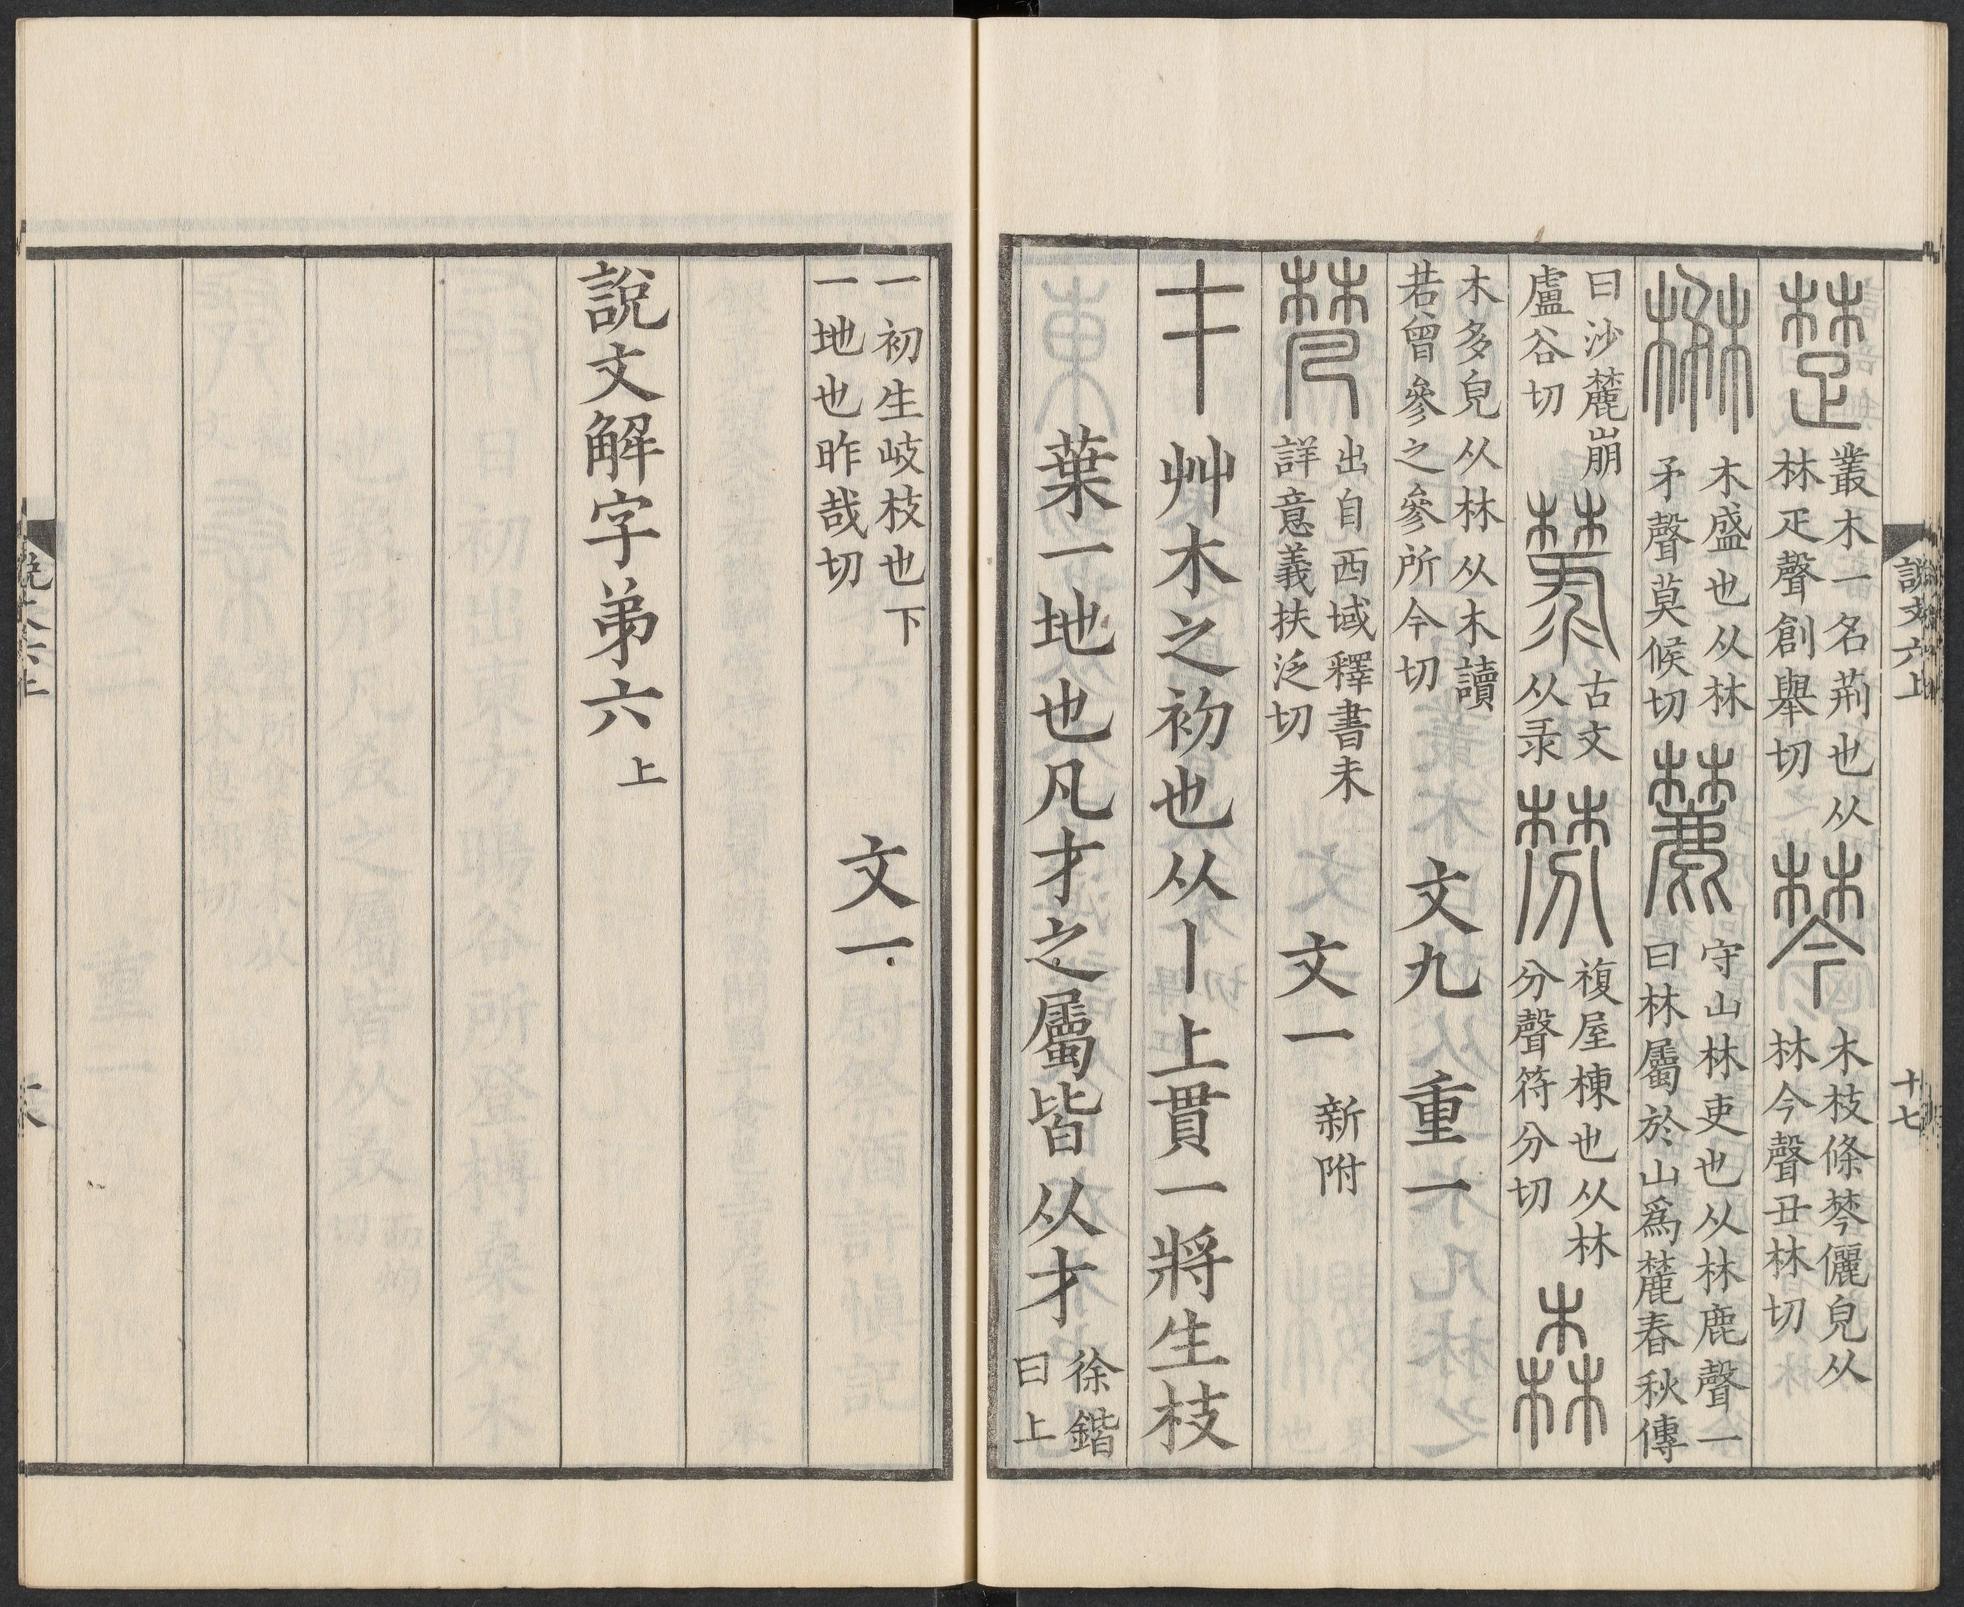 楚叢木一名荆也从林疋聲創舉切棽木枝條棽儷皃从林今聲丑林切
楙木盛也从林矛聲莫候切麓守山林吏也从林鹿聲一曰林屬於山爲麓春秋傳
曰沙麓崩盧谷切𣟊古文从录棼複屋棟也从林分聲符分切森
木多皃从林从木讀若曾參之參所今切 文九 重一
梵出自西域釋書未詳意義扶泛切 文一 新附
才艸木之初也从丨上貫一將生枝
葉一地也凡才之屬皆从才徐鍇曰上
說文六上 十七
一初生歧枝也下一地也昨哉切 文一
說文解字弟六上